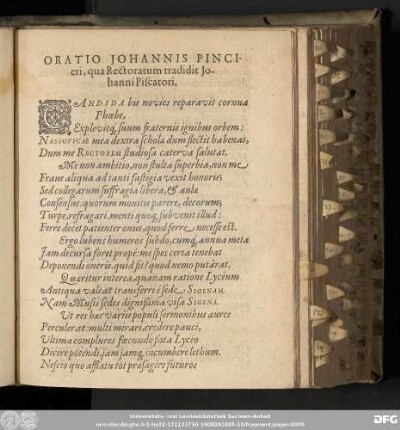 ORATIO JOHANNIS PINCI-
eri, qua Rectoratum tradidit Jo-
hanni Piscatori.
CANDIDA bis novies reparavit cornua
Phœbe,
Explevitq́; suum fraternis ignibus orbem:
NASSOVICÆ mea dextra scholæ dum flectit habenas,
Dum me RECTOREM studiosa caterva salutat.
Me non ambitio, non stulta superbia, non me
Fraus aliqua ad tanti fastigia vexit honoris;
Sed collegarum suffragia libera, & aulæ
Consensus: quorum monitis parere, decorum;
Turpe, refragari. menti quoq; subvenit illud:
Ferre decet patienter onus, quod ferre necesse est.
Ergo lubens humeros subdo, cumq; annua meta
Jam decursa foret propè: me spes certa tenebat
Deponendi oneris. quid fit? quod nemo putârat.
Quæritur interea, quanam ratione Lycêum
Antiqua valeat transferri è sede SIGENAM.
Nam Musis sedes dignissima visa SIGENA.
Ut res hæc variis populi sermonibus aures
Perculerat: multi mirari, credere pauci,
Ultima complures fœcundo fata Lycêo
Dicere potêndi, jam jamq; incumbere lethum.
Nescio quo afflatu tot præsagire futuros
Universitäts- und Landesbibliothek Sachsen-Anhalt
DFG